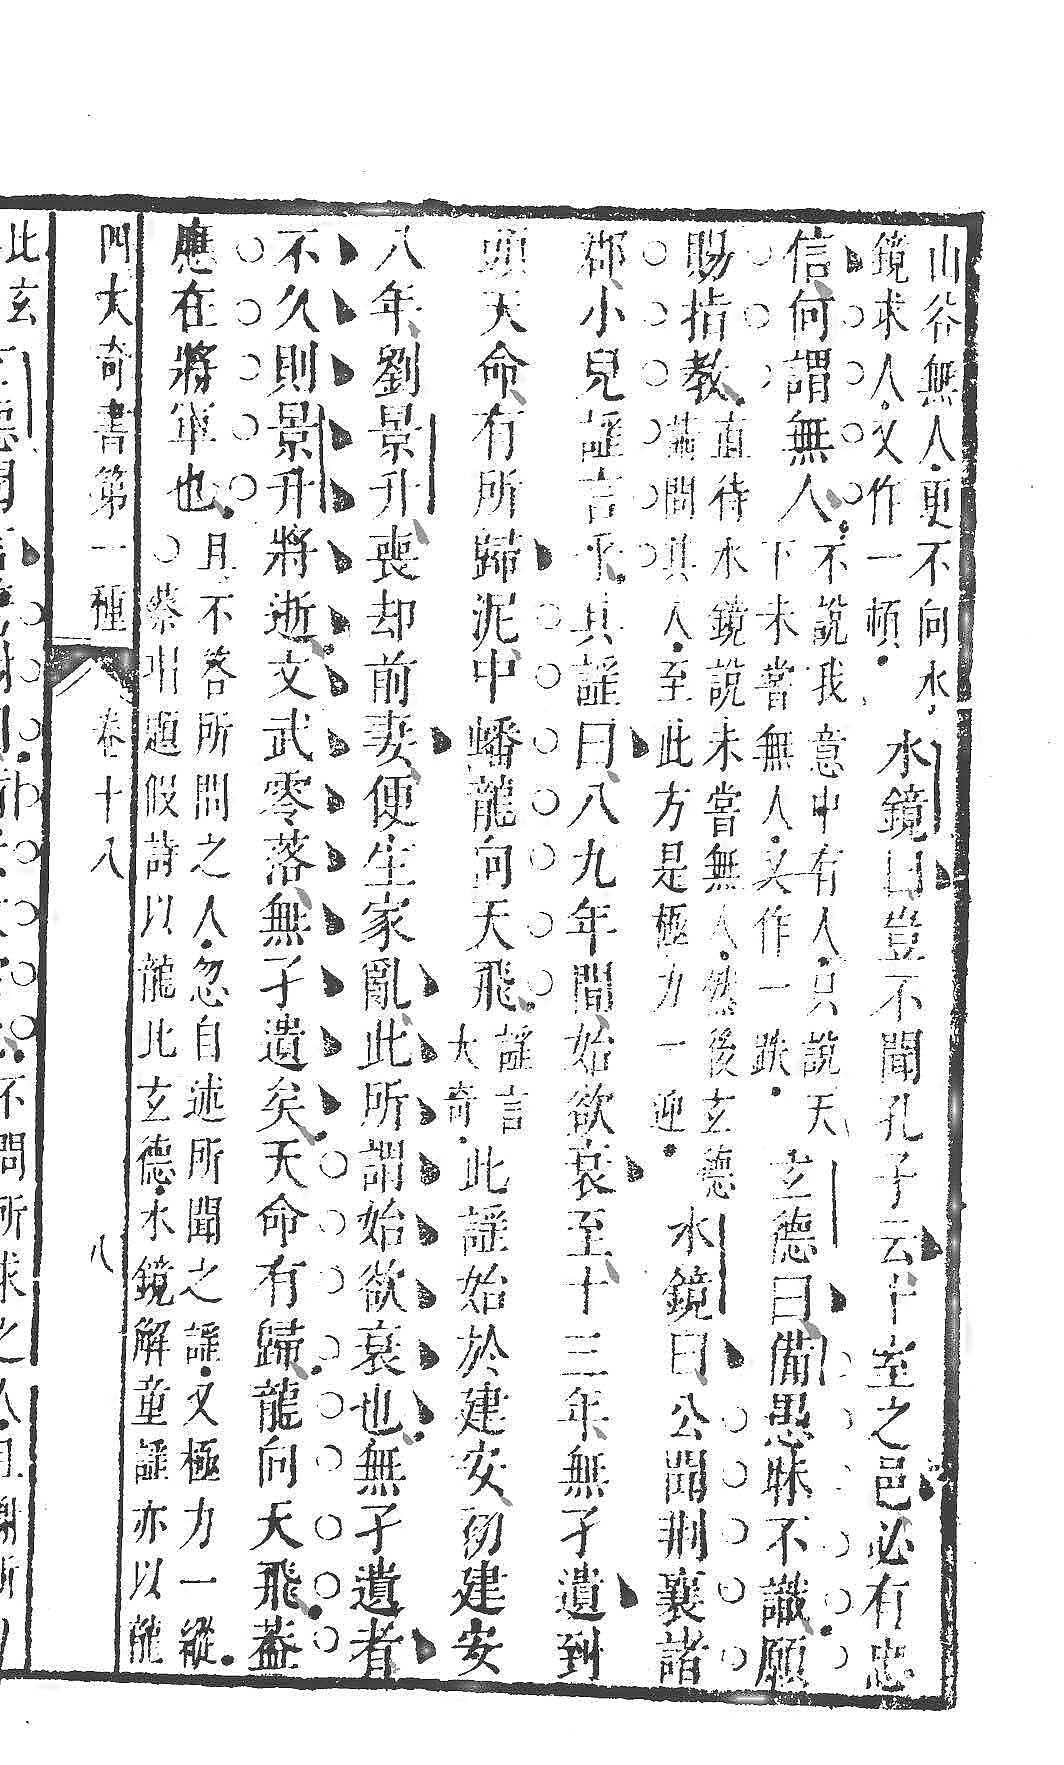 山谷無人更不向水
鏡求人又作一頓
水鏡曰豈不聞孔子云十室之邑必有忠
信何謂無人
不說我意中有人只說天
下未嘗無人又作一跌
玄德曰備愚昧不識願
賜指教
直待水鏡說未嘗無人然後玄德
纔問其人至此方是極力一迎
水鏡曰公聞荆襄諸
郡小兒謠言乎其謠曰八九年間始欲衰至十三年無孑遺到
頭天命有所歸泥中蟠龍向天飛
謠言
大奇
此謠始於建安初建安
八年劉景升喪却前妻便生家亂此所謂始欲衰也無孑遺者
不久則景升將逝文武零落無孑遺矣天命有歸龍向天飛葢
應在將軍也
且不答所問之人忽自述所聞之謠又極力一縱
○蔡瑁題假詩以龍比玄德水鏡解童謠亦以龍
四大奇書第一種 卷十八 八
比玄
不問所求之人且謝所